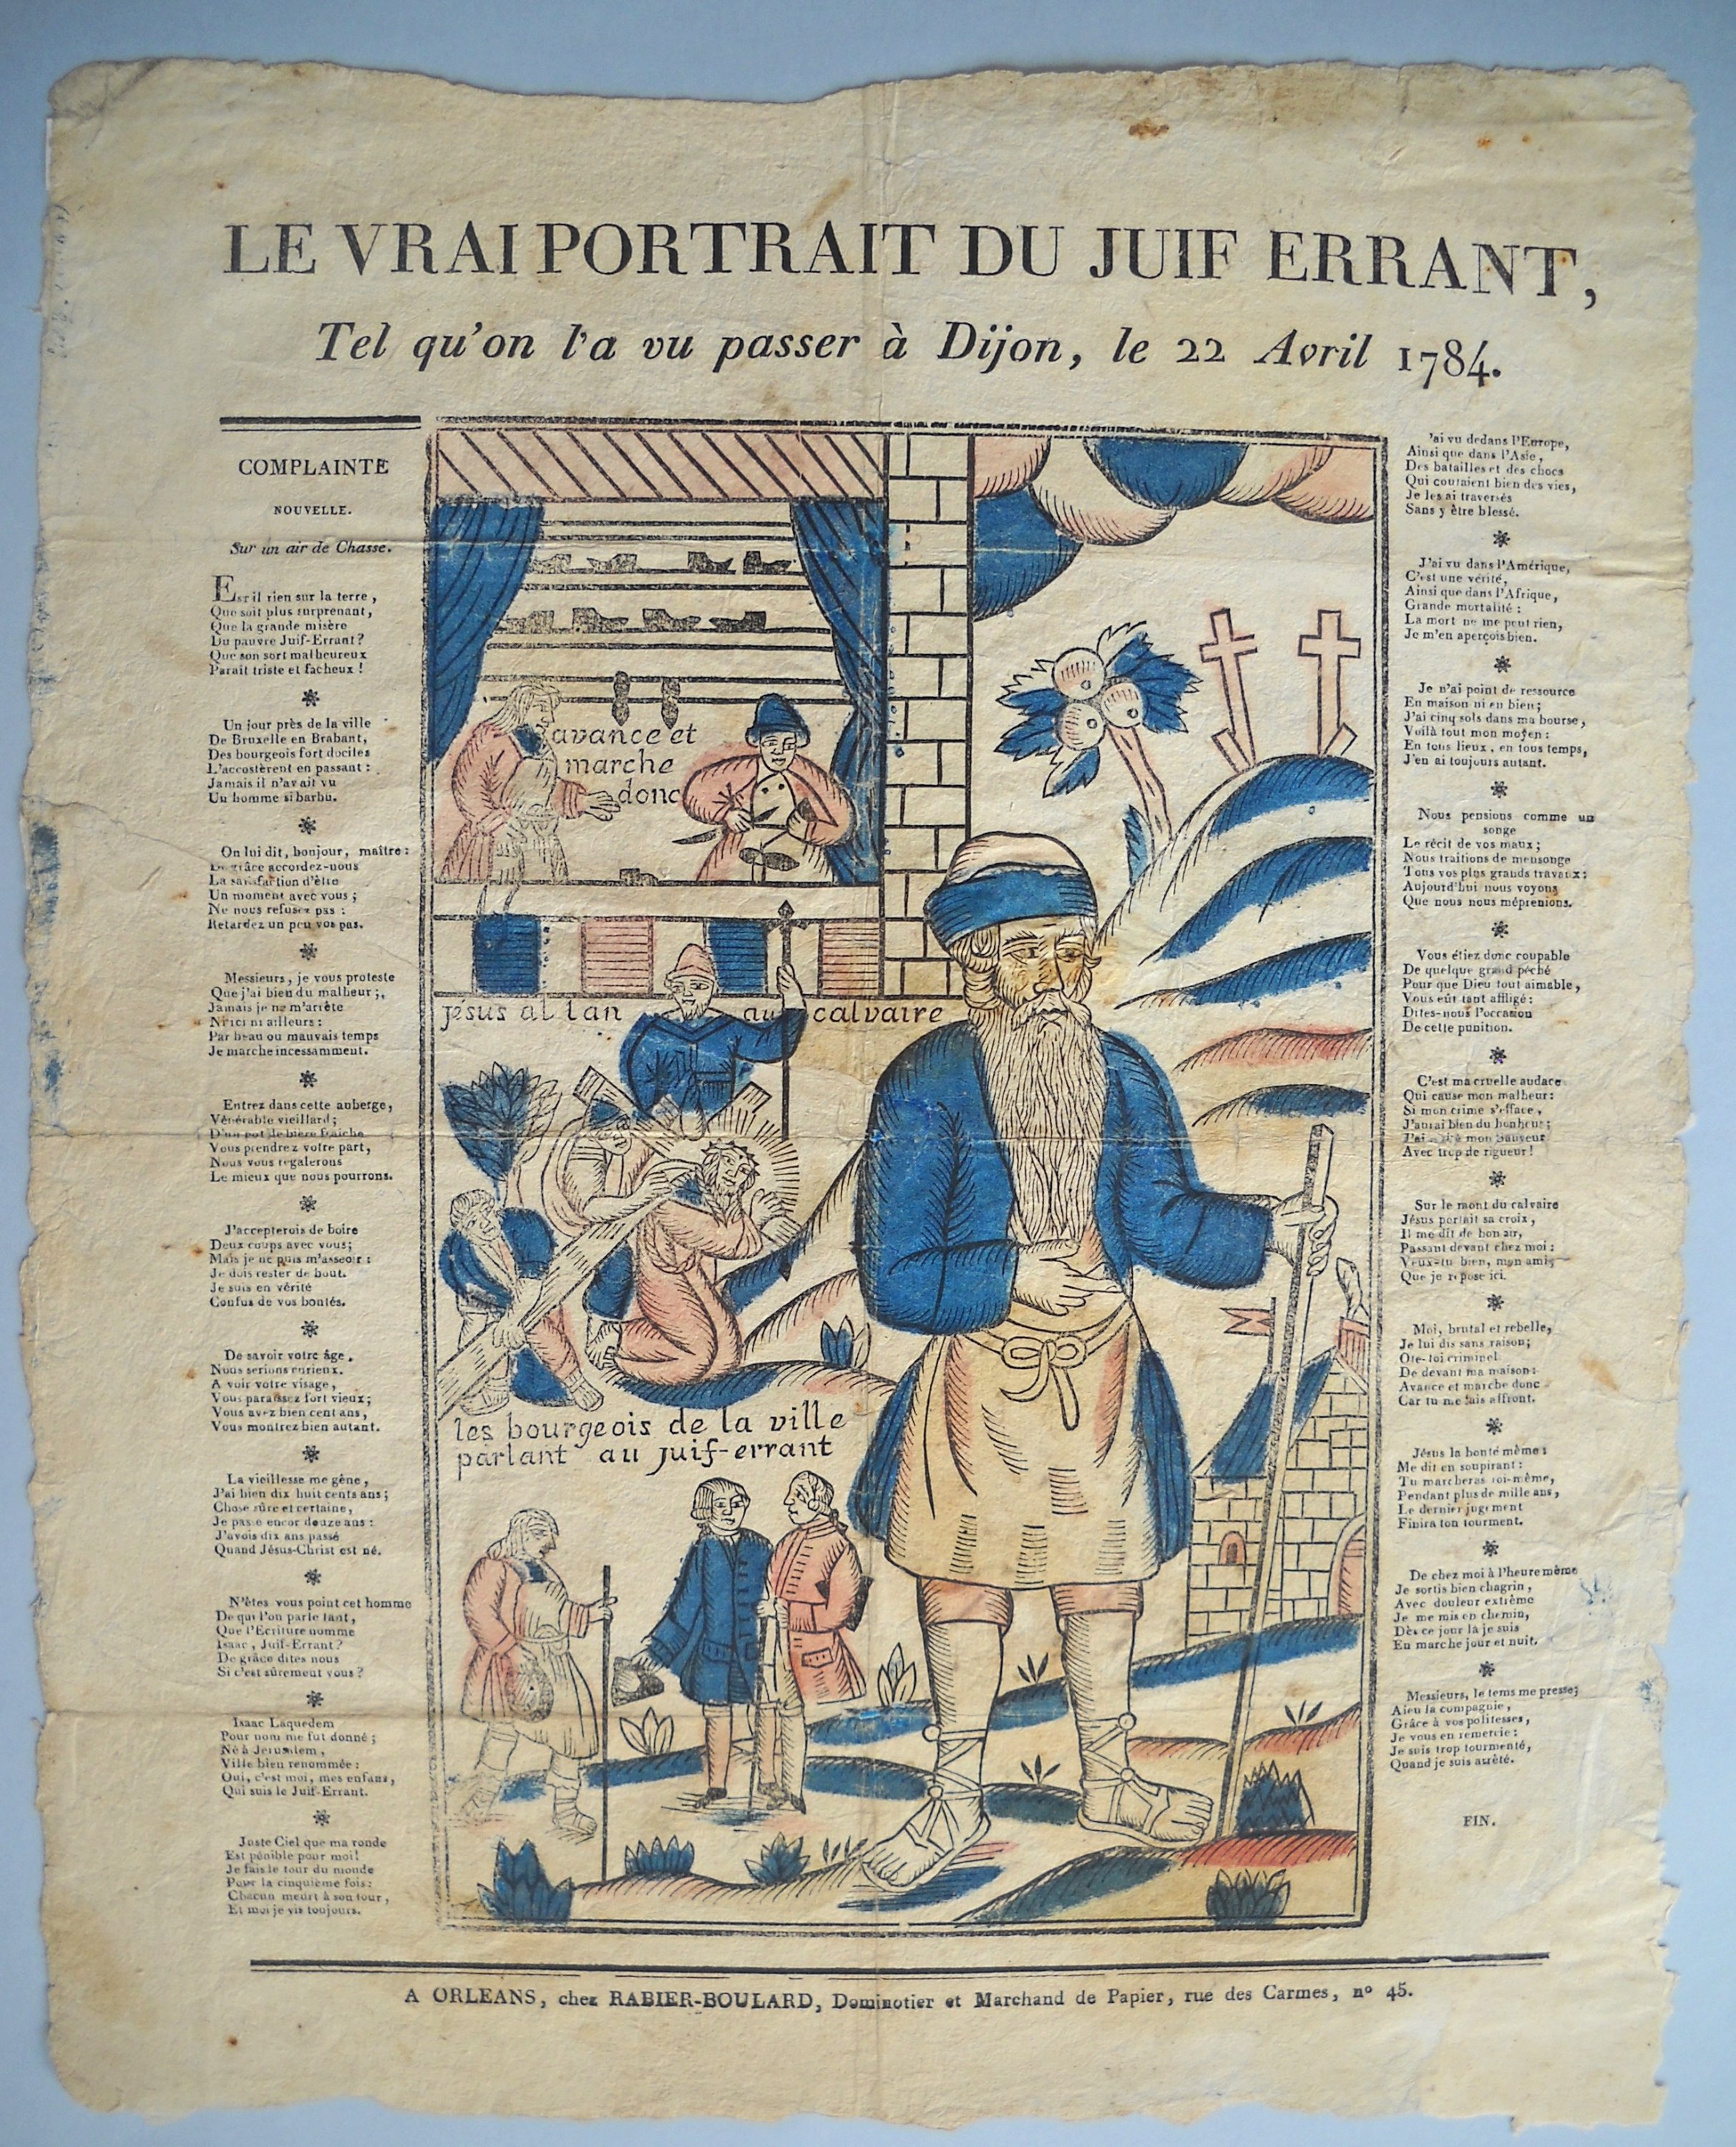 LE VRAI PORTRAIT DU JUIF ERRANT,
Tel qu'on l'a vu passer à Dijon, le 22 Avril 1784.
COMPLAINTE
NOUVELLE.
Sur un air de Chasse.
Est il rien sur la terre,
Que soit plus surprenant,
Que la grande misère
Du pauvre Juif-Errant?
Que son sort malheureux
Parait triste et facheux!
Un jour près de la ville
De Bruxelle en Brabant,
Des bourgeois fort dociles
L'accostèrent en passant:
Jamais il n'avait vu
Un homme si barbu.
On lui dit, bonjour, maître:
De grâce accordez-nous
La satisfaction d'être
Un moment avec vous;
Ne nous refusez pas:
Retardez un peu vos pas.
Messieurs, je vous proteste
Que j'ai bien du malheur;
Jamais je ne m'arrête
Ni ici ni ailleurs:
Par beau ou mauvais temps
Je marche incessamment.
Entrez dans cette auberge,
Vénérable vieillard;
D'un pot de bière fraiche
Vous prendrez votre part,
Nous vous regalerons
Le mieux que nous pourrons.
J'accepterois de boire
Deux coups avec vous;
Mais je ne puis m'asseoir:
Je dois rester de bout.
Je suis en vérité
Confus de vos bontés.
De savoir votre âge,
Nous serions curieux.
A voir votre visage,
Vous paraissez fort vieux;
Vous avez bien cent ans,
Vous montrez bien autant.
La vieillesse me gêne,
J'ai bien dix huit cents ans;
Chose sûre et certaine,
Je passe encor douze ans:
J'avois dix ans passé
Quand Jésus-Christ est né.
N'êtes vous point cet homme
De qui l'on parle tant,
Que l'Ecriture nomme
Isaac, Juif-Errant?
De grâce dites nous
Si c'est sûrement vous?
Isaac Laquedem
Pour nom me fut donné;
Né à Jerusalem,
Ville bien renommée:
Oui, c'est moi, mes enfans,
Qui suis le Juif-Errant.
Juste Ciel que ma ronde
Est pénible pour moi!
Je fais le tour du monde
Pour la cinquième fois:
Chacun meurt à son tour,
Et moi je vis toujours.
avance et
marche
donc
jésus al lan au calvaire
les bourgeois de la ville
parlant au juif-errant
'ai vu dedans l'Europe,
Ainsi que dans l'Asie,
Des batailles et des chocs
Qui coutaient bien des vies,
Je les ai traversés
Sans y être blessé.
J'ai vu dans l'Amérique,
C'est une vérité,
Ainsi que dans l'Afrique,
Grande mortalité:
La mort ne me peut rien,
Je m'en aperçois bien.
Je n'ai point de ressource
En maison ni en bien;
J'ai cinq sols dans ma bourse,
Voilà tout mon moyen:
En tous lieux, en tous temps,
J'en ai toujours autant.
Nous pensions comme un
songe
Le récit de vos maux;
Nous traitions de mensonge
Tous vos plus grands travaux:
Aujourd'hui nous voyons
Que nous nous méprenions.
Vous étiez donc coupable
De quelque grand péché
Pour que Dieu tout aimable,
Vous eût tant affligé:
Dites-nous l'occasion
De cette punition.
C'est ma cruelle audace
Qui cause mon malheur:
Si mon crime s'efface,
J'aurai bien du bonheur;
J'ai mon Sauveur
Avec trop de rigueur!
Sur le mont du calvaire
Jésus portait sa croix,
Il me dit de bon air,
Passant devant chez moi:
Veux-tu bien, mon ami
Que je repose ici.
Moi, brutal et rebelle,
Je lui dis sans raison;
Ote-toi criminel
De devant ma maison:
Avance et marche donc
Car tu me fais affront.
Jésus la bonté même:
Me dit en soupirant:
Tu marcheras toi-même,
Pendant plus de mille ans,
Le dernier jugement
Finira ton tourment.
De chez moi à l'heure même
Je sortis bien chagrin,
Avec douleur extrême
Je me mis en chemin,
Dès ce jour là je suis
En marche jour et nuit.
Messieurs, le tems me presse;
Aieu la compagnie,
Grâce à vos politesses,
Je vous en remercie:
Je suis trop tourmenté,
Quand je suis arrêté.
FIN.
A ORLEANS, chez RABIER-BOULARD, Dominotier et Marchand de Papier, rue des Carmes, nº 45.